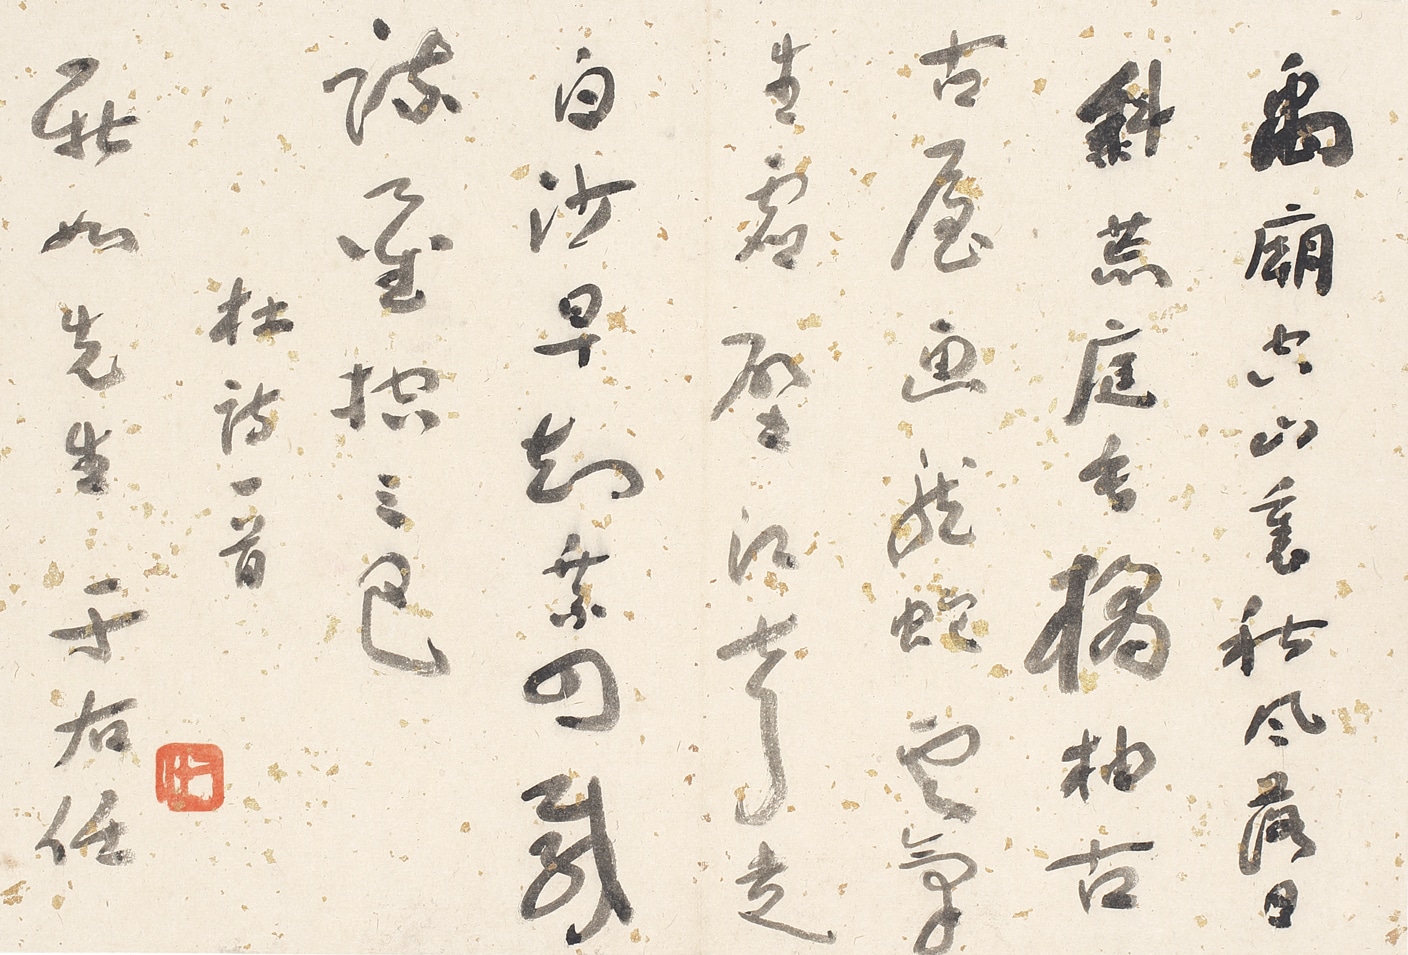 禹廟空山裏秋風落日
斜荒庭垂橘柚古
古屋画龍蛇雲氣
生虛壁江聲走
白沙早知乘四載
疏鑿控三巴
杜詩一首
如先生 于右任